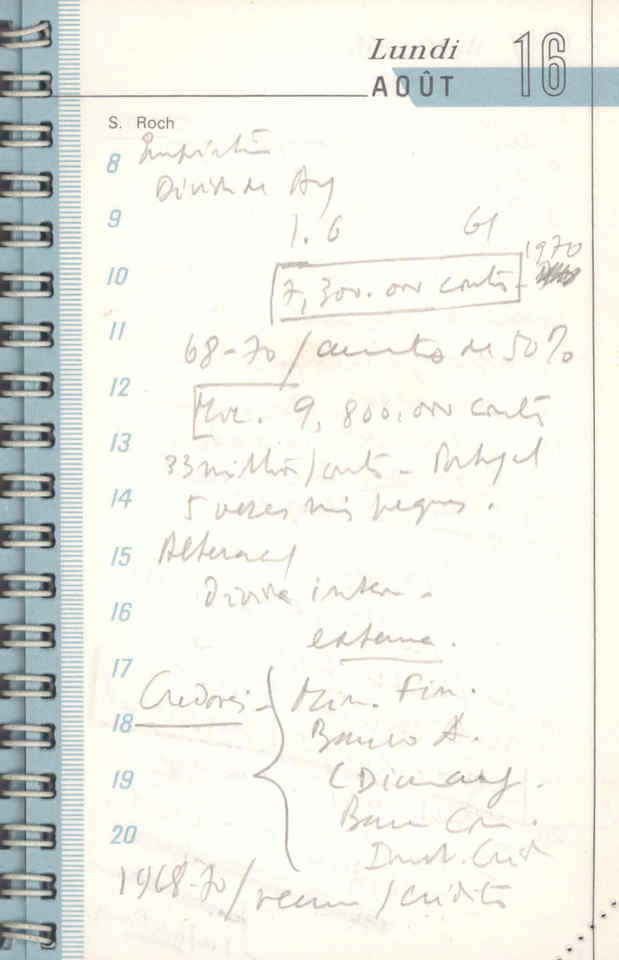 Lundi 16
AOÛT
S. Roch
8
Divida Ang
9
1. G G1
1970
10
7,300.000 contos
11
68-70/aumento de 50%
12
Moc. 9,800.000 contos
13
33 milhões/contos - Portugal
14
5 vezes mais pequeno.
15
Divida intern -
16
externa.
17
Credores - Min. Fin.
18
Banco A.
19
C Diamang.
Banco Com.
20
Inst. Créd
1968-70/recurso/crédito